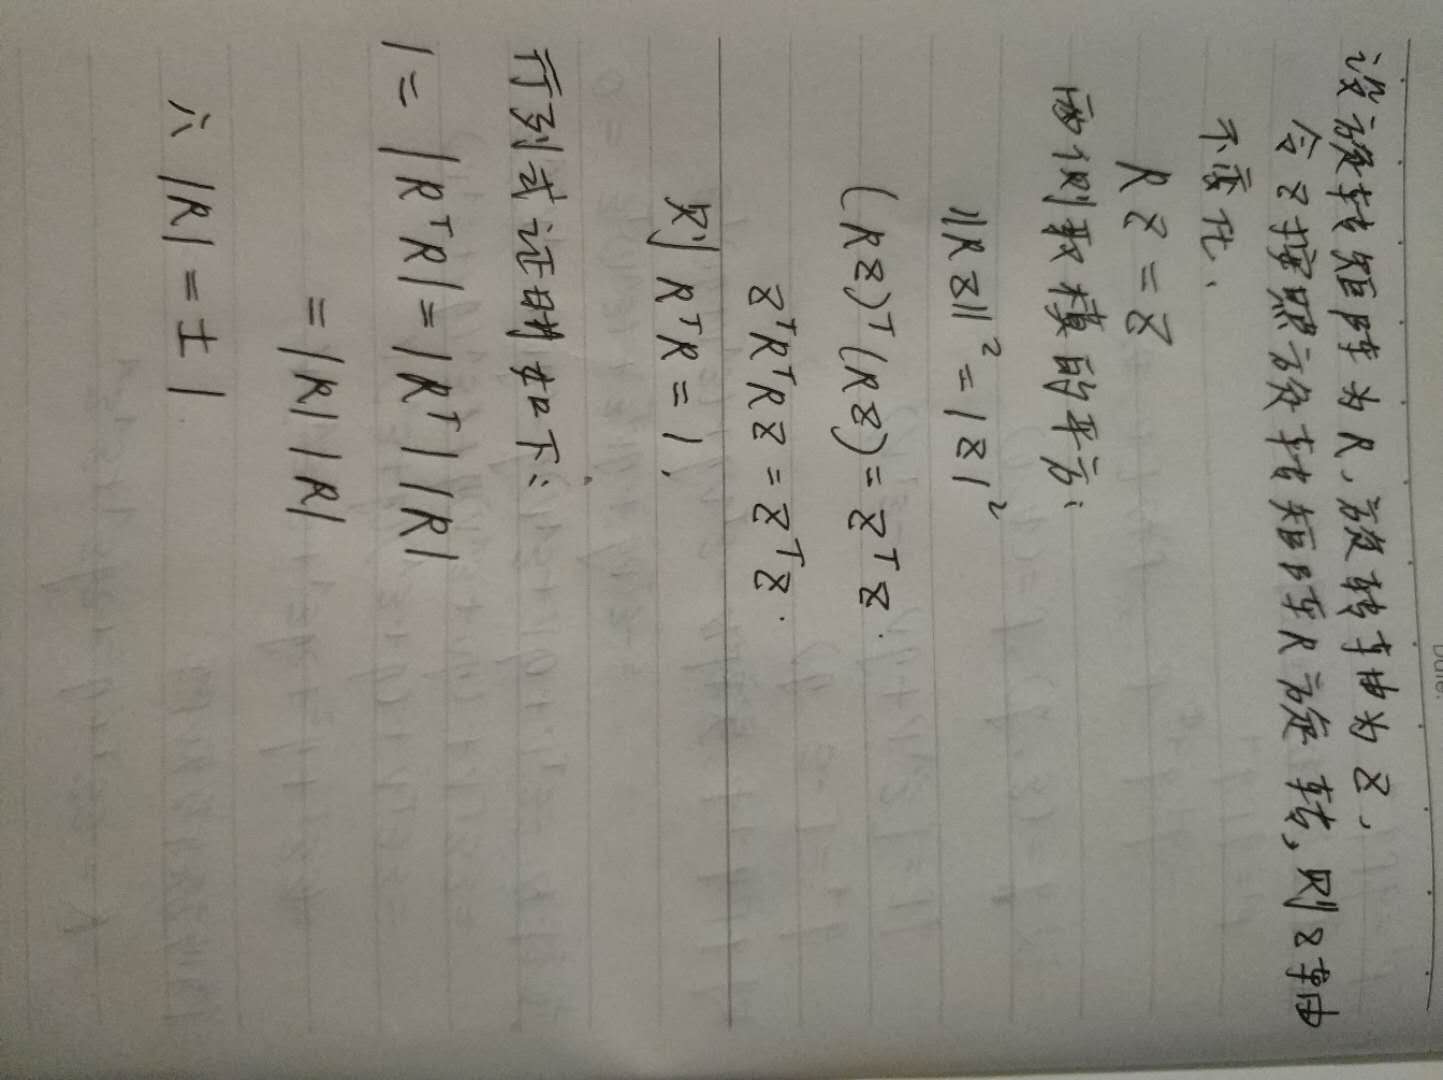 设旋转矩阵为R,旋转轴为Z,
令Z按照旋转矩阵R旋转,则Z轴
不变化.
RZ=Z
两侧取模的平方:
||RZ||²=|Z|²
(RZ)ᵀ(RZ)=ZᵀZ.
ZᵀRᵀRZ=ZᵀZ.
则RᵀR=1.
行列式证明如下:
1=|RᵀR|=|Rᵀ||R|
=|R||R|
∴|R|=±1